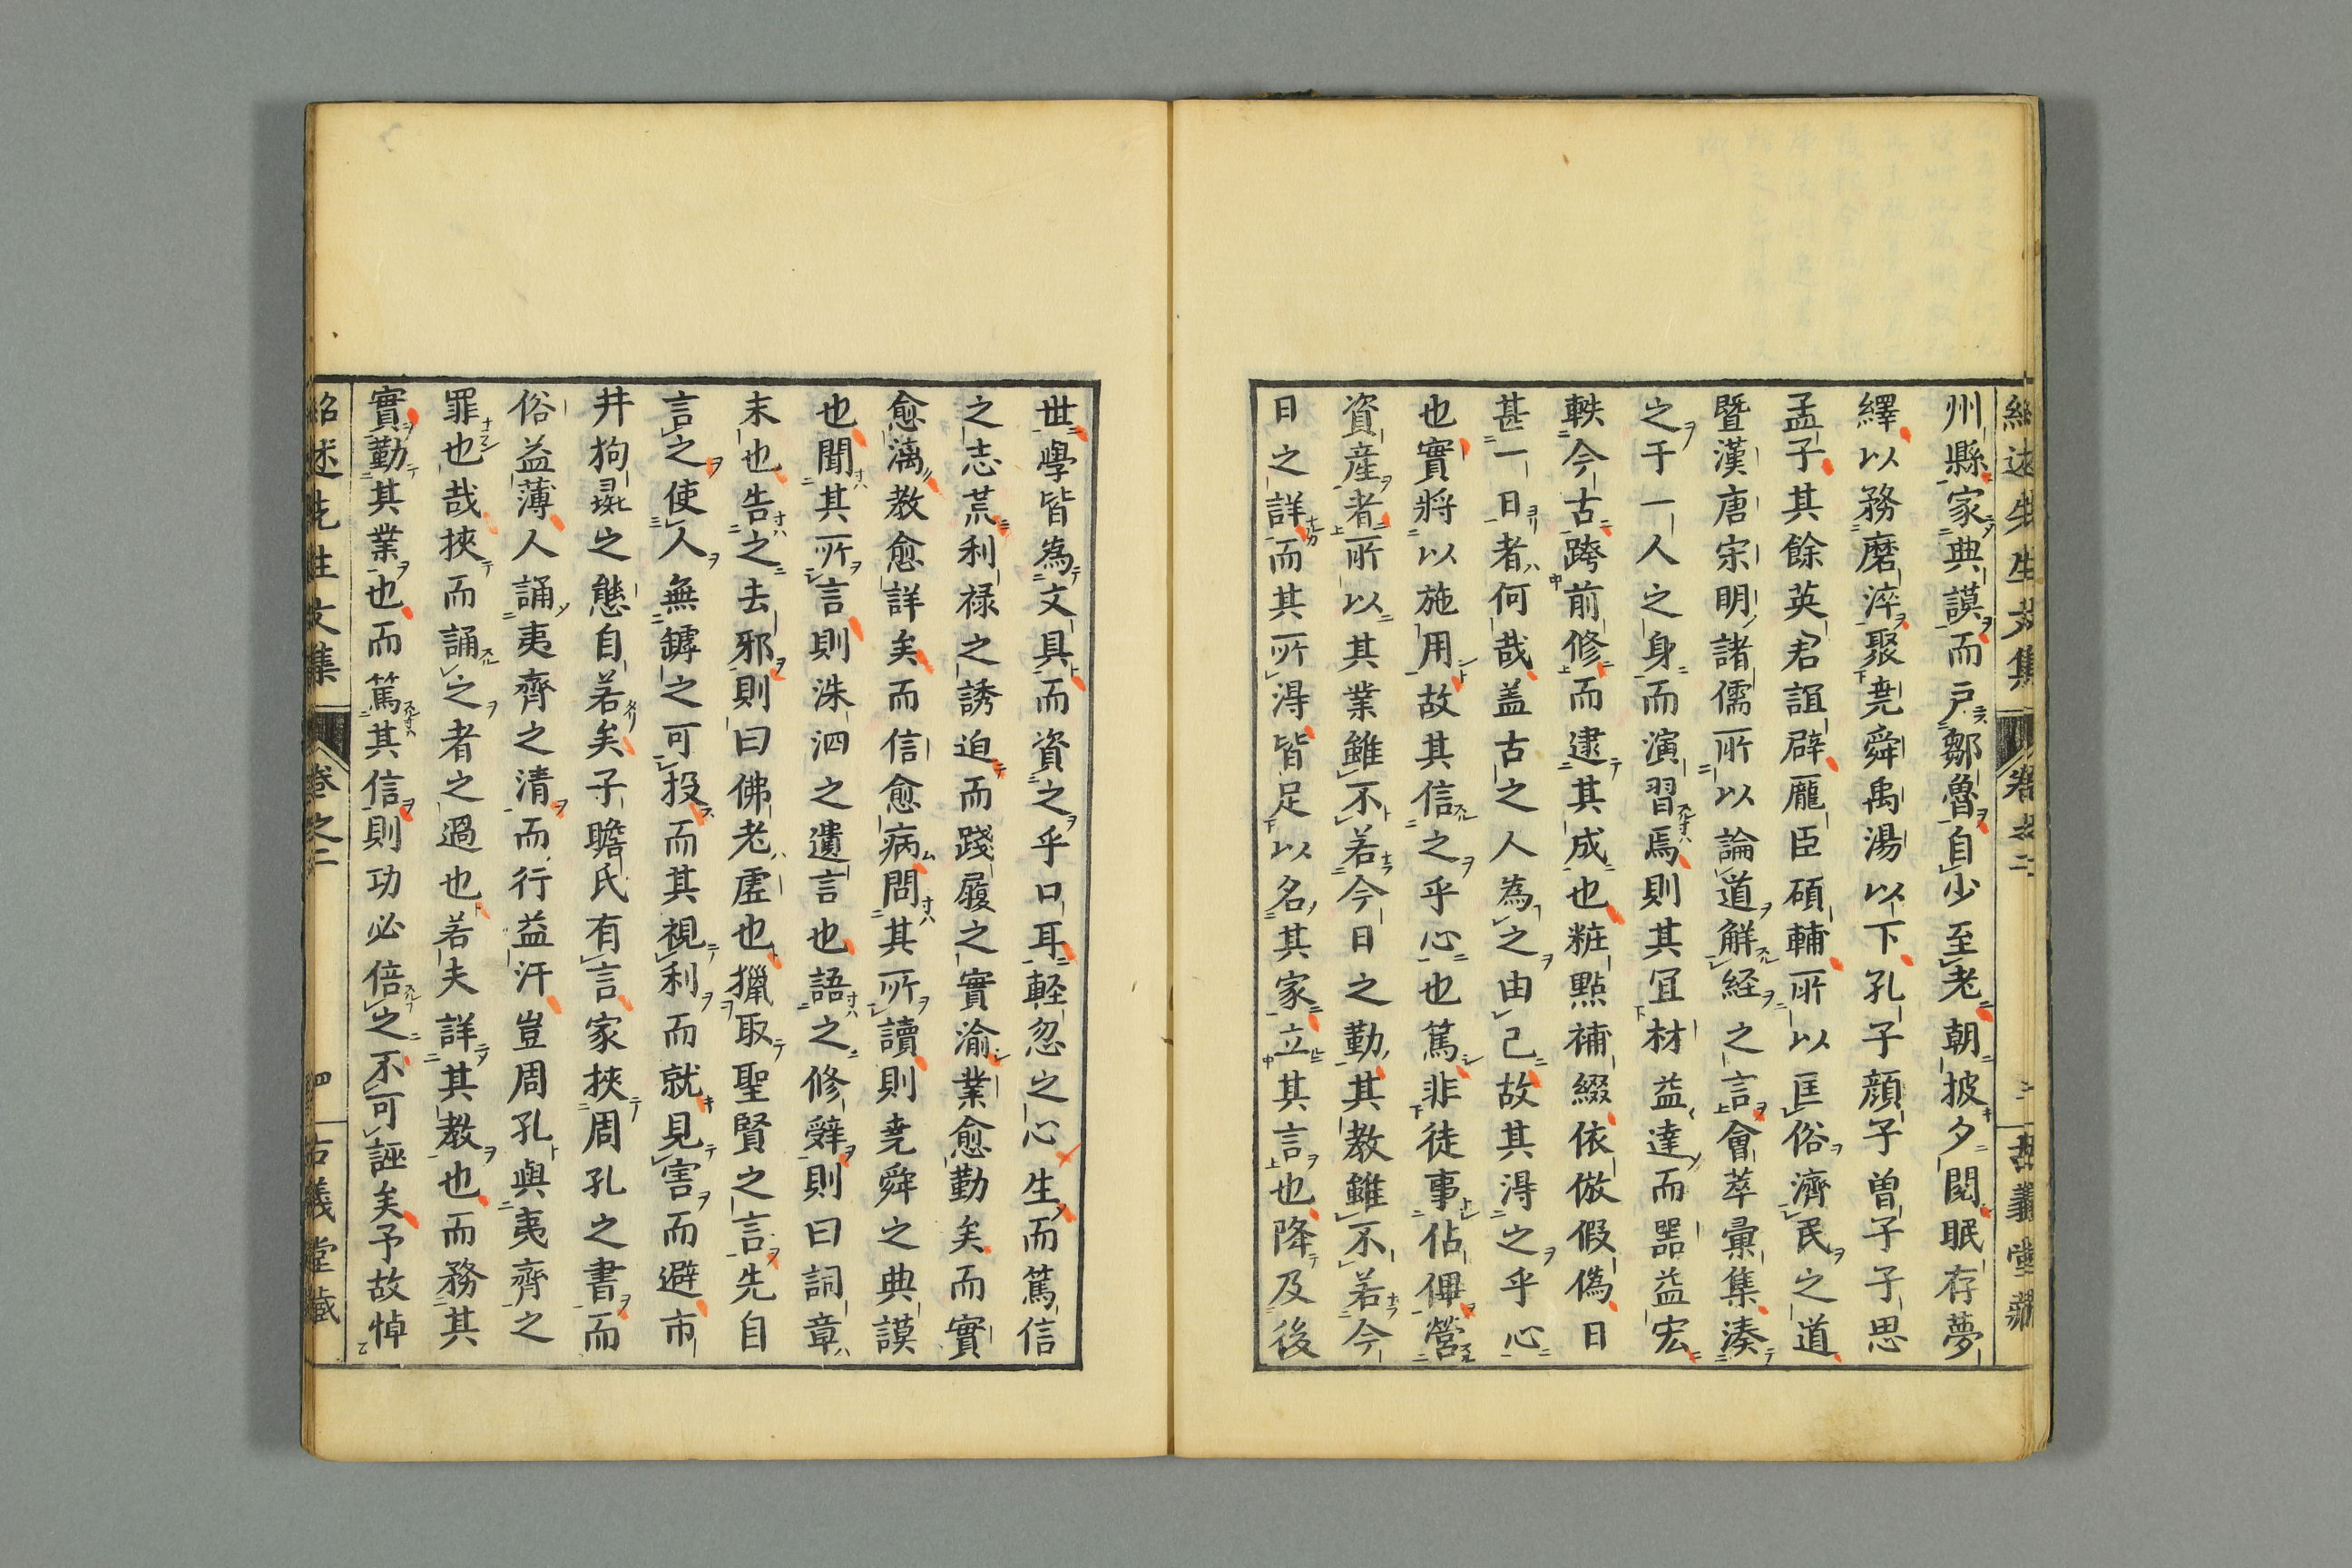 紹述先生文集 卷之二 古義堂藏
州縣家典謨而戶鄒魯自少至老朝披夕閱眠存夢
繹以務磨淬聚堯舜禹湯以下孔子顔子曾子子思
孟子其餘英君誼辟龐臣碩輔所以匡俗濟民之道
曁漢唐宋明諸儒所以論道解経之言會萃彙集湊
之于一人之身而演習焉則其冝材益達而噐益宏
軼今古跨前修而逮其成也粧點補綴依倣假偽日
甚一日者何哉盖古之人為之由己故其淂之乎心
也實將以施用故其信之乎心也篤非徒事佔俾營
資産者所以其業雖不若今日之勤其教雖不若今
日之詳而其所淂皆足以名其家立其言也降及後
世學皆為文具而資之乎口耳輕忽之心生而篤信
之志荒利祿之誘迫而踐履之實渝業愈勤矣而實
愈漓教愈詳矣而信愈病問其所讀則堯舜之典謨
也聞其所言則洙泗之遺言也語之修辭則曰詞章
末也告之去邪則曰佛老虛也獵取聖賢之言先自
言之使人無罅之可投而其視利而就見害而避市
井狗彘之態自若矣子瞻氏有言家挾周孔之書而
俗益薄人誦夷齊之清而行益汙豈周孔與夷齊之
罪也哉挾而誦之者之過也若夫詳其教也而務其
實勤其業也而篤其信則功必倍之不可誣矣予故悼
紹述先生文集 卷之二 四 古義堂藏